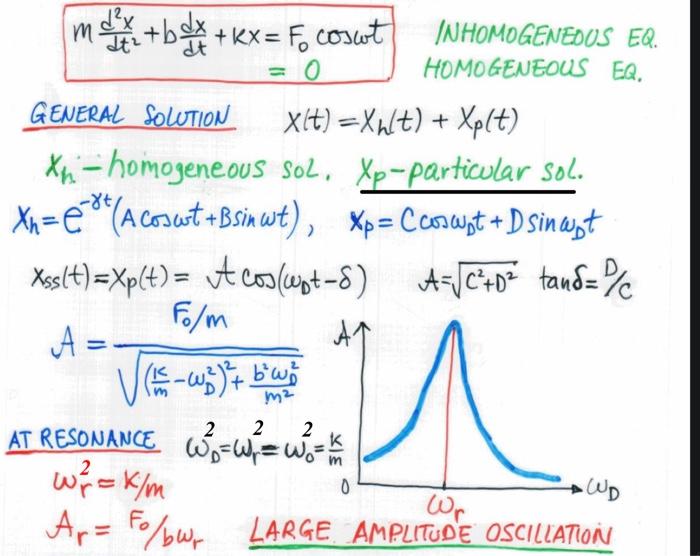 m d²x/dt² + b dx/dt + Kx = F₀ cosωt INHOMOGENEOUS EQ.
= 0 HOMOGENEOUS EQ.
GENERAL SOLUTION X(t) = Xh(t) + Xp(t)
Xh - homogeneous sol. Xp - particular sol.
Xh = e^-γt (A cosωt + B sin ωt), Xp = C cosω_D t + D sin ω_D t
Xss(t) = Xp(t) = A cos(ω_D t - δ) A = √(C² + D²) tanδ = D/C
A = (F₀/m) / √((K/m - ω_D²)² + b²ω_D²/m²)
A
0
ω_r
ω_D
AT RESONANCE ω_D² = ω_r² = ω₀² = K/m
ω_r² = K/m
A_r = F₀/bω_r LARGE AMPLITUDE OSCILLATION